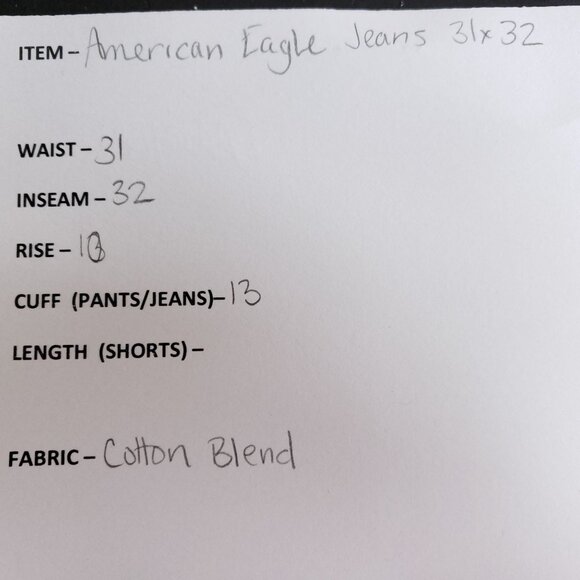 ITEM – American Eagle Jeans 31x32
WAIST – 31
INSEAM – 32
RISE –
CUFF (PANTS/JEANS)– 13
LENGTH (SHORTS) –
FABRIC – Cotton Blend